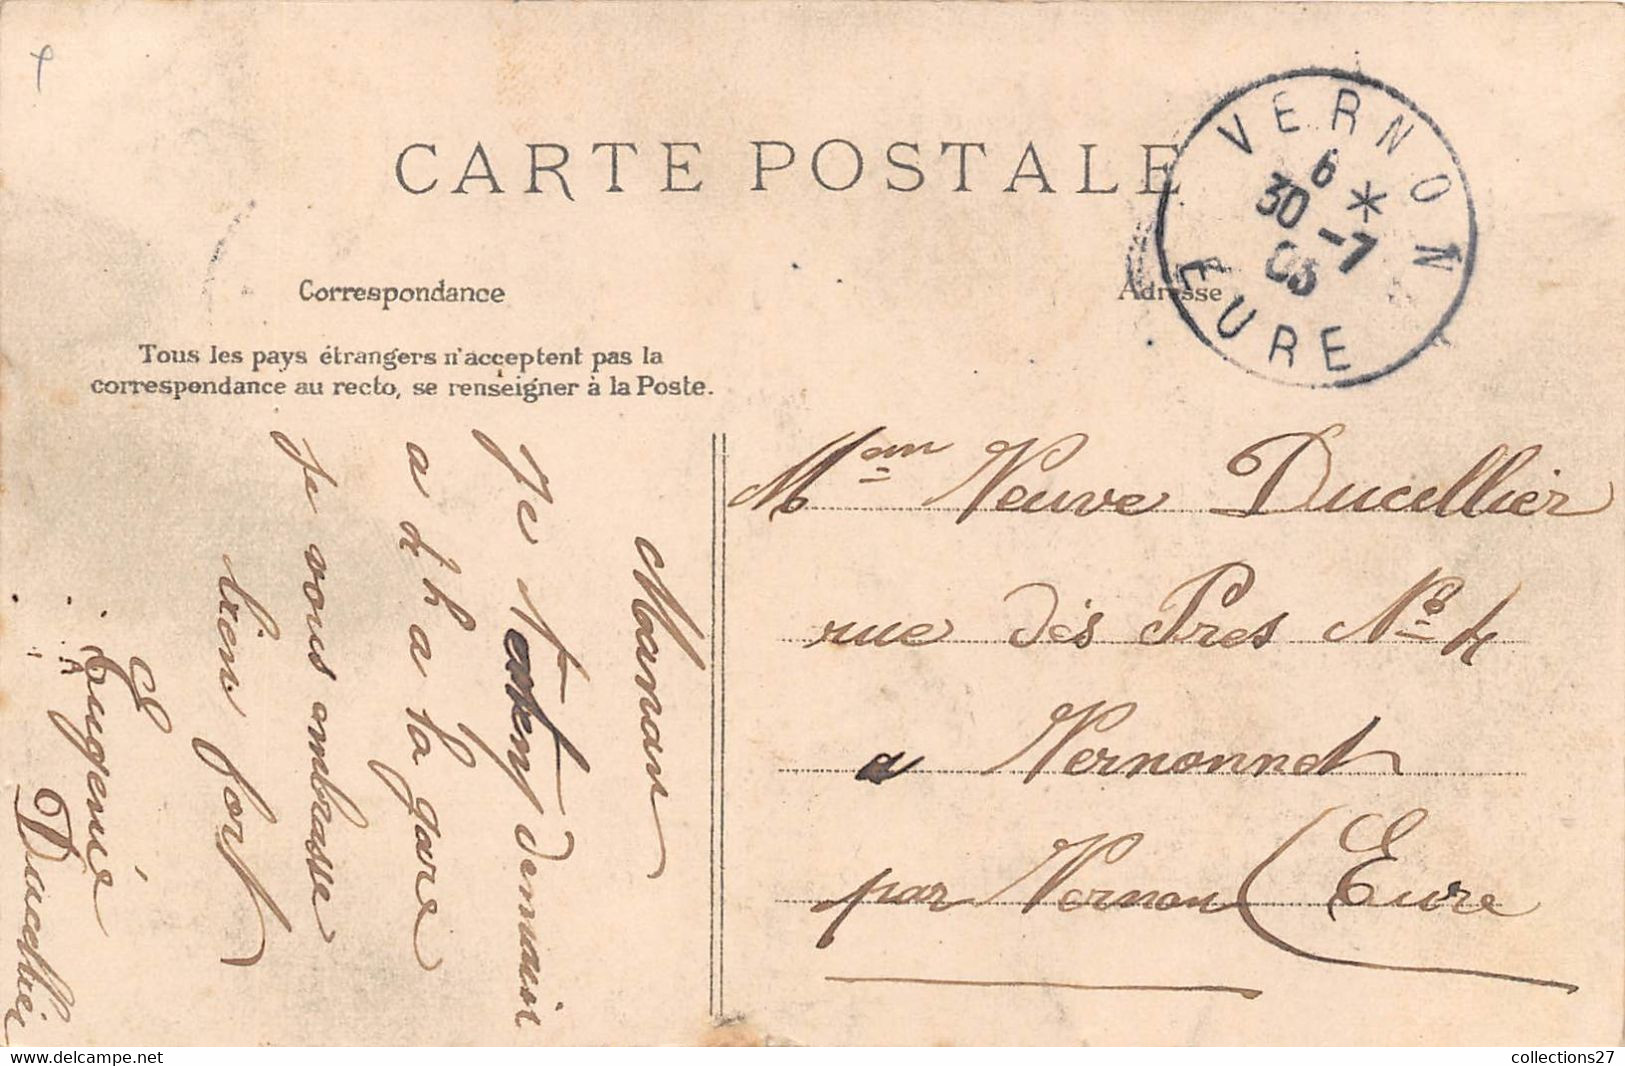 CARTE POSTALE
VERNON
6 *
30 -7
05
EURE
Correspondance
Adresse
Tous les pays étrangers n'acceptent pas la
correspondance au recto, se renseigner à la Poste.
Maman
Je demain
a la gare
Je vous ambrasse
bien fort
Eugenie
Ducellier
Mam Veuve Ducellier
rue dès Pres No 4
a Vernonnet
par Vernon (Eure
collections27